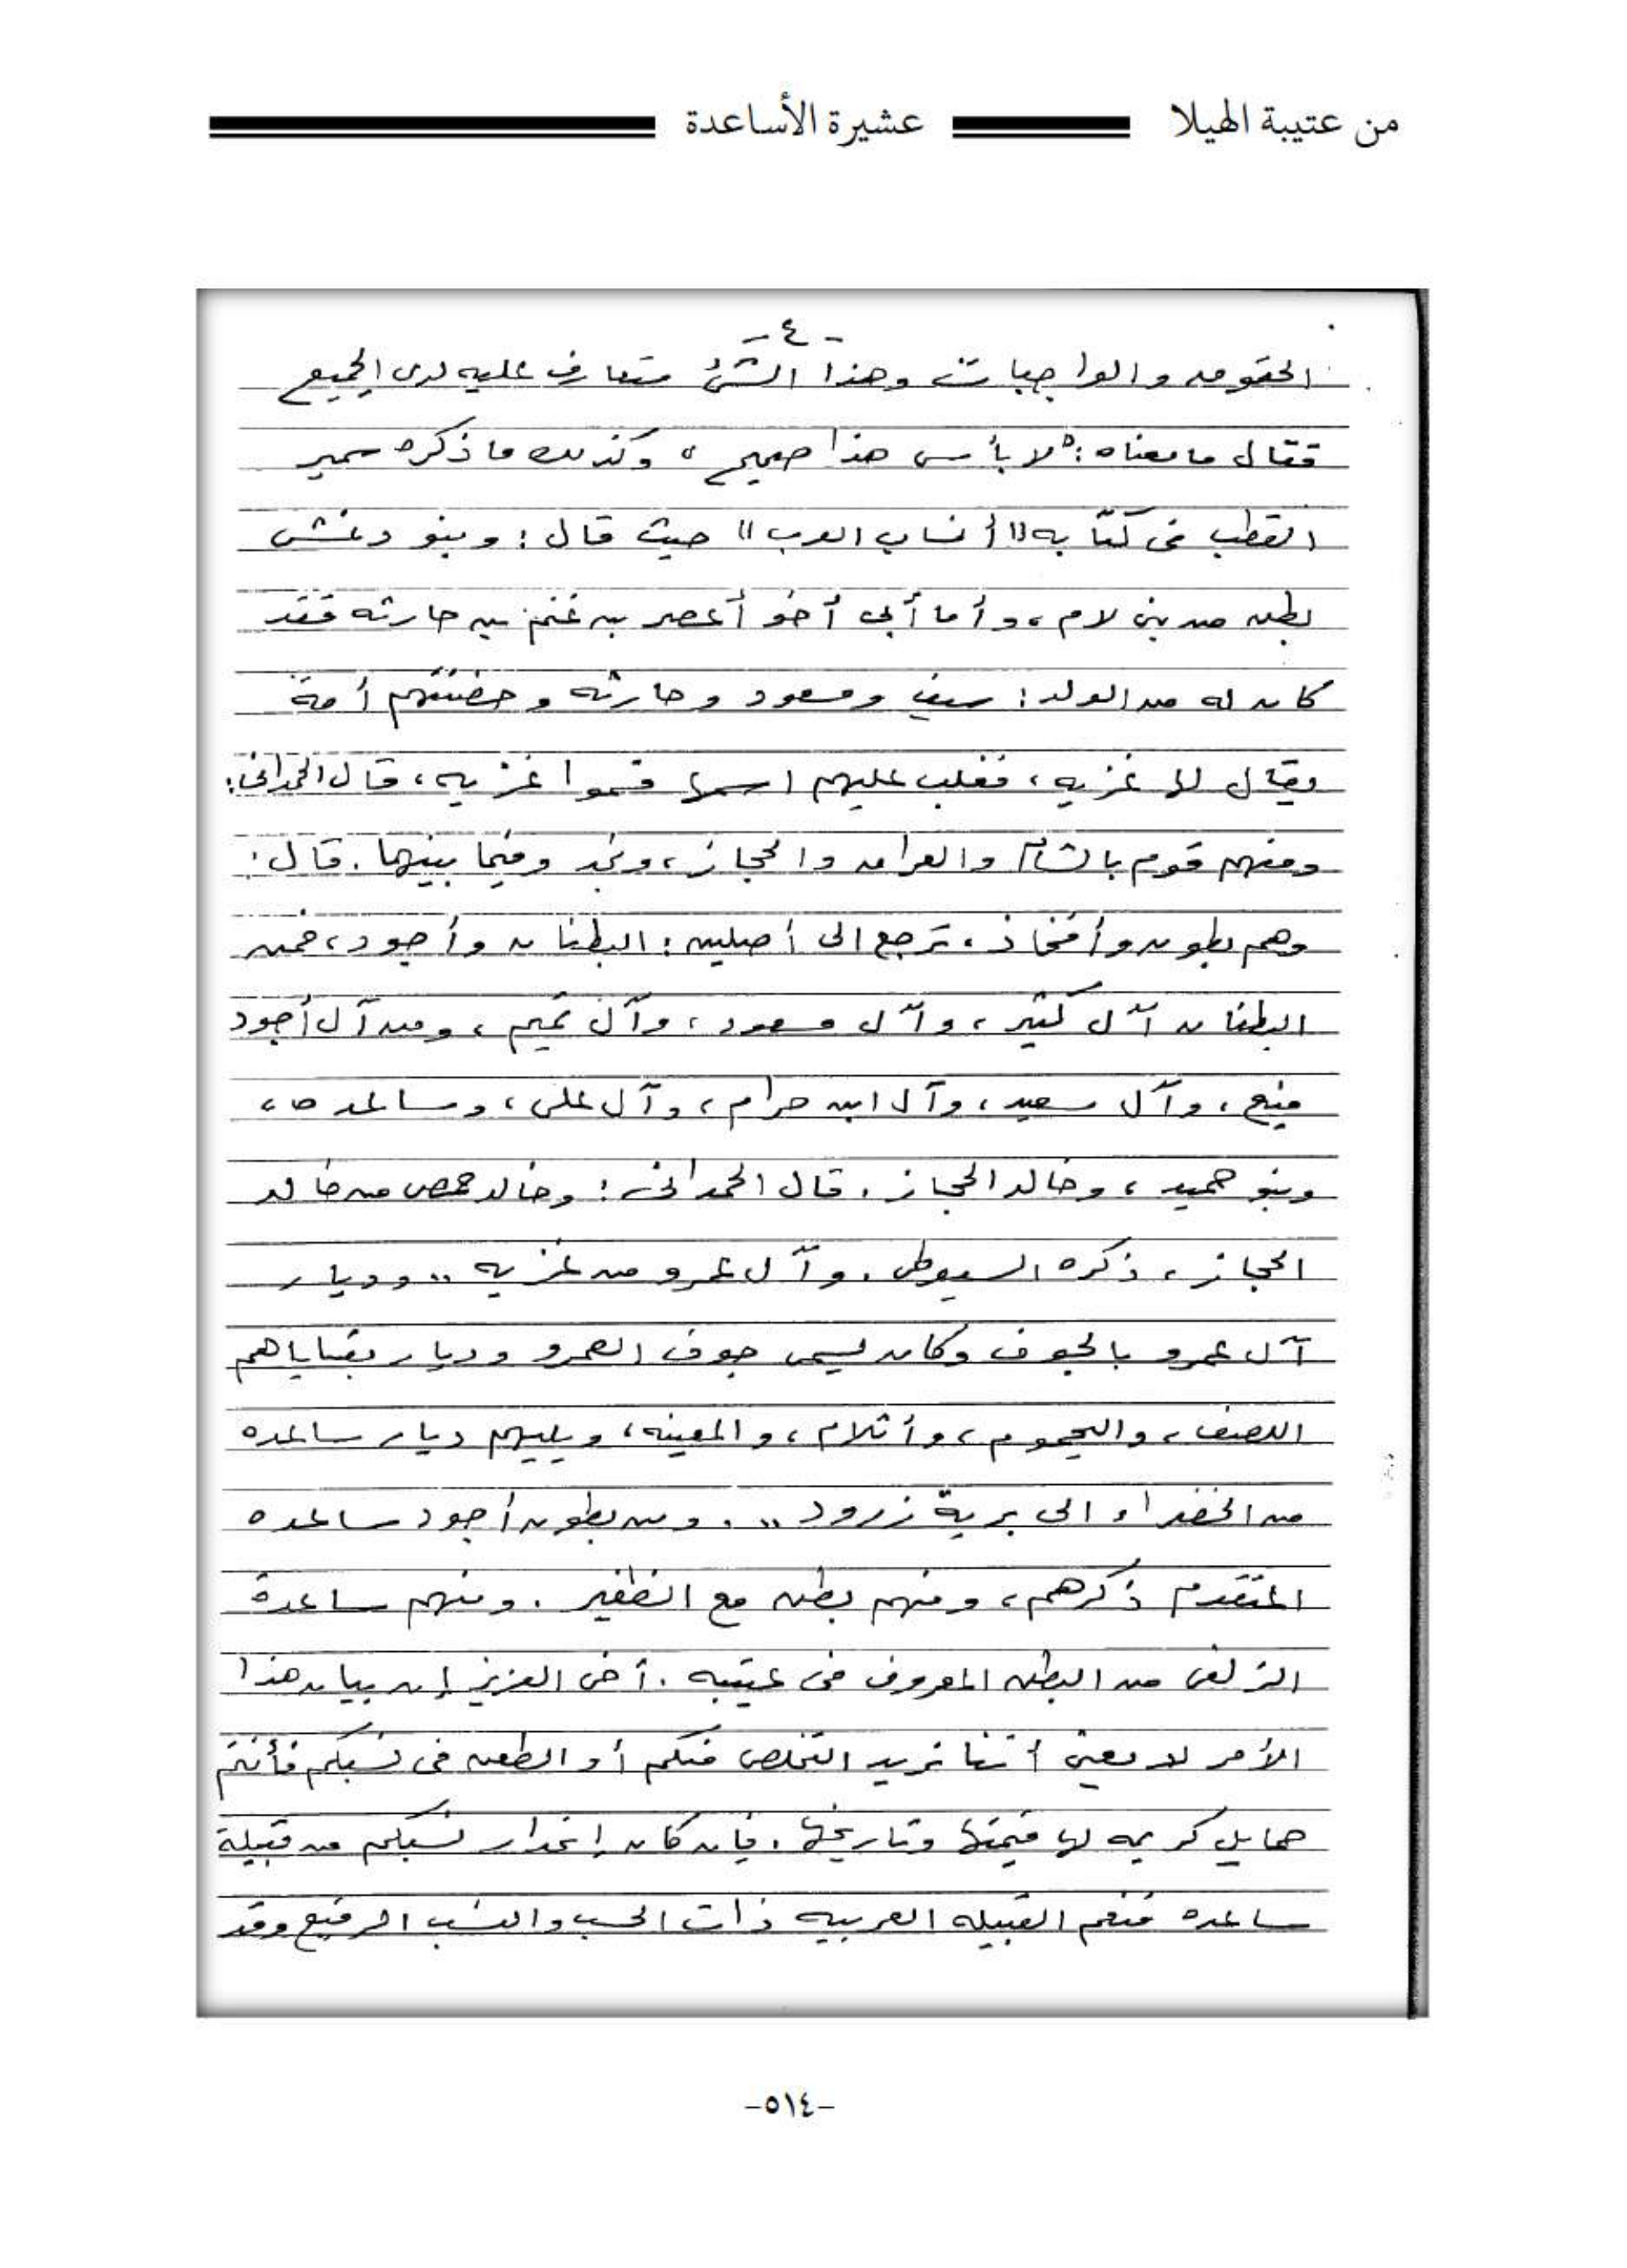 من عتيبة الهيلا عشيرة الأساعدة
- ٤ -
الحقوق والواجبات وهذا الشئ متعارف عليه لدى الجميع
فقال ما معناه: لا بأس هذا صحيح، وكذلك ما ذكره سمير
القطب في كتابه "أنساب العرب" حيث قال: وبنو دغش
بطن من بني لام، وأما أبي أخو أعصر بن غنم بن حارثه فقد
كان له من الولد: سيف ومسعود وحارثه وحضنتهم أمة
يقال لها غزيه، فغلب عليهم اسمها فسموا غزيه، قال الحمداني:
ومنهم قوم بالشام والعراق والحجاز، ونجد وفيما بينهما. قال:
وهم بطون وأفخاذ، ترجع الى أصلين: البطنان وأجود، فمن
البطنان آل كثير، وآل مسعود، وآل تميم، ومن آل أجود
منيع، وآل سعيد، وآل ابن حرام، وآل علي، وساعده،
وبنو حميد، وخالد الحجاز. قال الحمداني: وخالد حمص من خالد
الحجاز، ذكره السيوطي. وآل عمرو من غزيه .. وديار
آل عمرو بالجوف وكان يسمى جوف العمرو وديار بقاياهم
اللصف، واليحموم، وأثلام، والمعينه، ويليهم ديار ساعده
من الخضراء الى برية زرود .. . ومن بطون أجود ساعده
المتقدم ذكرهم، ومنهم بطن مع الظفير. ومنهم ساعدة
الزلفي من البطن المعروف في عتيبه. أخي العزيز إن بيان هذا
الأمر لا يعني أننا نريد التخلص منكم أو الطعن في نسبكم فأنتم
حمايل كريمه لها قيمتها وتاريخها. فإن كان إنحدار نسبكم من قبيلة
ساعده فنعم القبيله العربيه ذات الحسب والنسب الرفيع وقد
-٥١٤-